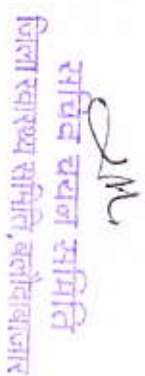 सचिव चयन समिति
जिला स्वास्थ्य समिति, बलौदाबाजार